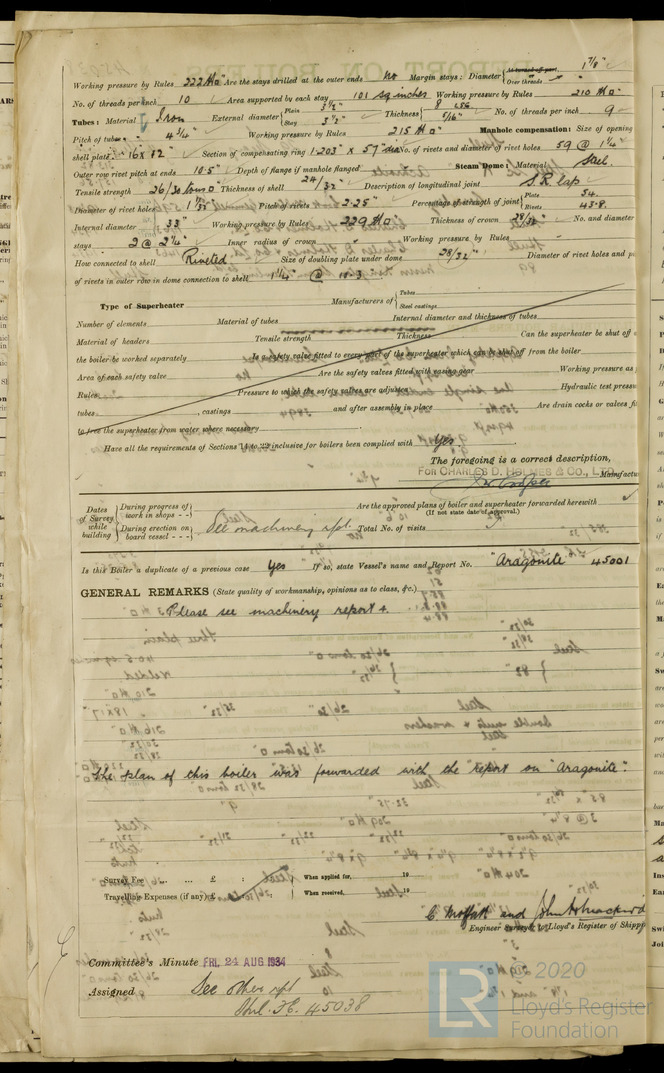 1 7/8"
Working pressure by Rules 222 Are the stays drilled at the outer ends No Margin stays: Diameter { At turned off part, Over threads
No. of threads per inch 10 Area supported by each stay 101 sq inches Working pressure by Rules 210
Tubes: Material Iron External diameter { Plain 3 1/2" Stay 3 1/2" Thickness { 8 LSG 5/16" No. of threads per inch 9
Pitch of tubes 4 3/4" Working pressure by Rules 215 Manhole compensation: Size of opening
shell plate 16 x 12" Section of compensating ring 1.203" x 57 No. of rivets and diameter of rivet holes 59 @ 1 1/4"
Outer row rivet pitch at ends 10.5" Depth of flange if manhole flanged Steam Dome: Material Steel
Tensile strength 26/30 tons Thickness of shell 24/32" Description of longitudinal joint S.R. lap
Diameter of rivet holes 1 1/32" Pitch of rivets 2.25" Percentage of strength of joint { Plate 54. Rivets 45.8.
Internal diameter 33" Working pressure by Rules 229 Thickness of crown 28/32" No. and diameter
stays 2 @ 2 1/4" Inner radius of crown Working pressure by Rules
How connected to shell Riveted Size of doubling plate under dome 28/32" Diameter of rivet holes and
of rivets in outer row in dome connection to shell 1 1/4" @ 10.3"
Type of Superheater Manufacturers of { Tubes Steel castings
Number of elements Material of tubes Internal diameter and thickness of tubes
Material of headers Tensile strength Thickness Can the superheater be shut off
the boiler be worked separately Is a safety valve fitted to every part of the superheater which can be shut off from the boiler
Area of each safety valve Are the safety valves fitted with easing gear Working pressure as
Rules Pressure to which the safety valves are adjusted Hydraulic test pressure
tubes , castings and after assembly in place Are drain cocks or valves
to free the superheater from water where necessary
Have all the requirements of Sections 14 to 22 inclusive for boilers been complied with Yes.
The foregoing is a correct description,
FOR CHARLES D. HOLMES & CO., LTD.
Cooper
Dates of Survey while building { During progress of work in shops - - During erection on board vessel - - - } See machinery rpt. Are the approved plans of boiler and superheater forwarded herewith (If not state date of approval.)
Total No. of visits
Is this Boiler a duplicate of a previous case Yes If so, state Vessel's name and Report No. "Aragonite" 45001
GENERAL REMARKS (State quality of workmanship, opinions as to class, &c.)
Please see machinery report
The plan of this boiler was forwarded with the report on "Aragonite".
Survey Fee ... ... £ : : When applied for, 19
Travelling Expenses (if any) £ : : When received, 19
C. Moffatt and John
Engineer Surveyor to Lloyd's Register of
Committee's Minute FRI. 24 AUG 1934
Assigned See other rpt
45038
© 2020
LR Lloyd's Register
Foundation